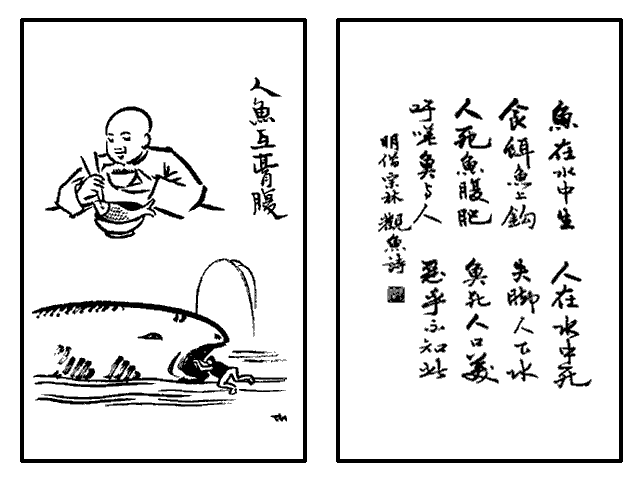 人魚互膏腹
TK
魚在水中生 人在水中死
食餌魚上鈎 失脚人下水
人死魚腹肥 魚死人口美
吁嗟魚与人 惡乎不知此
明僧宗林 觀魚詩